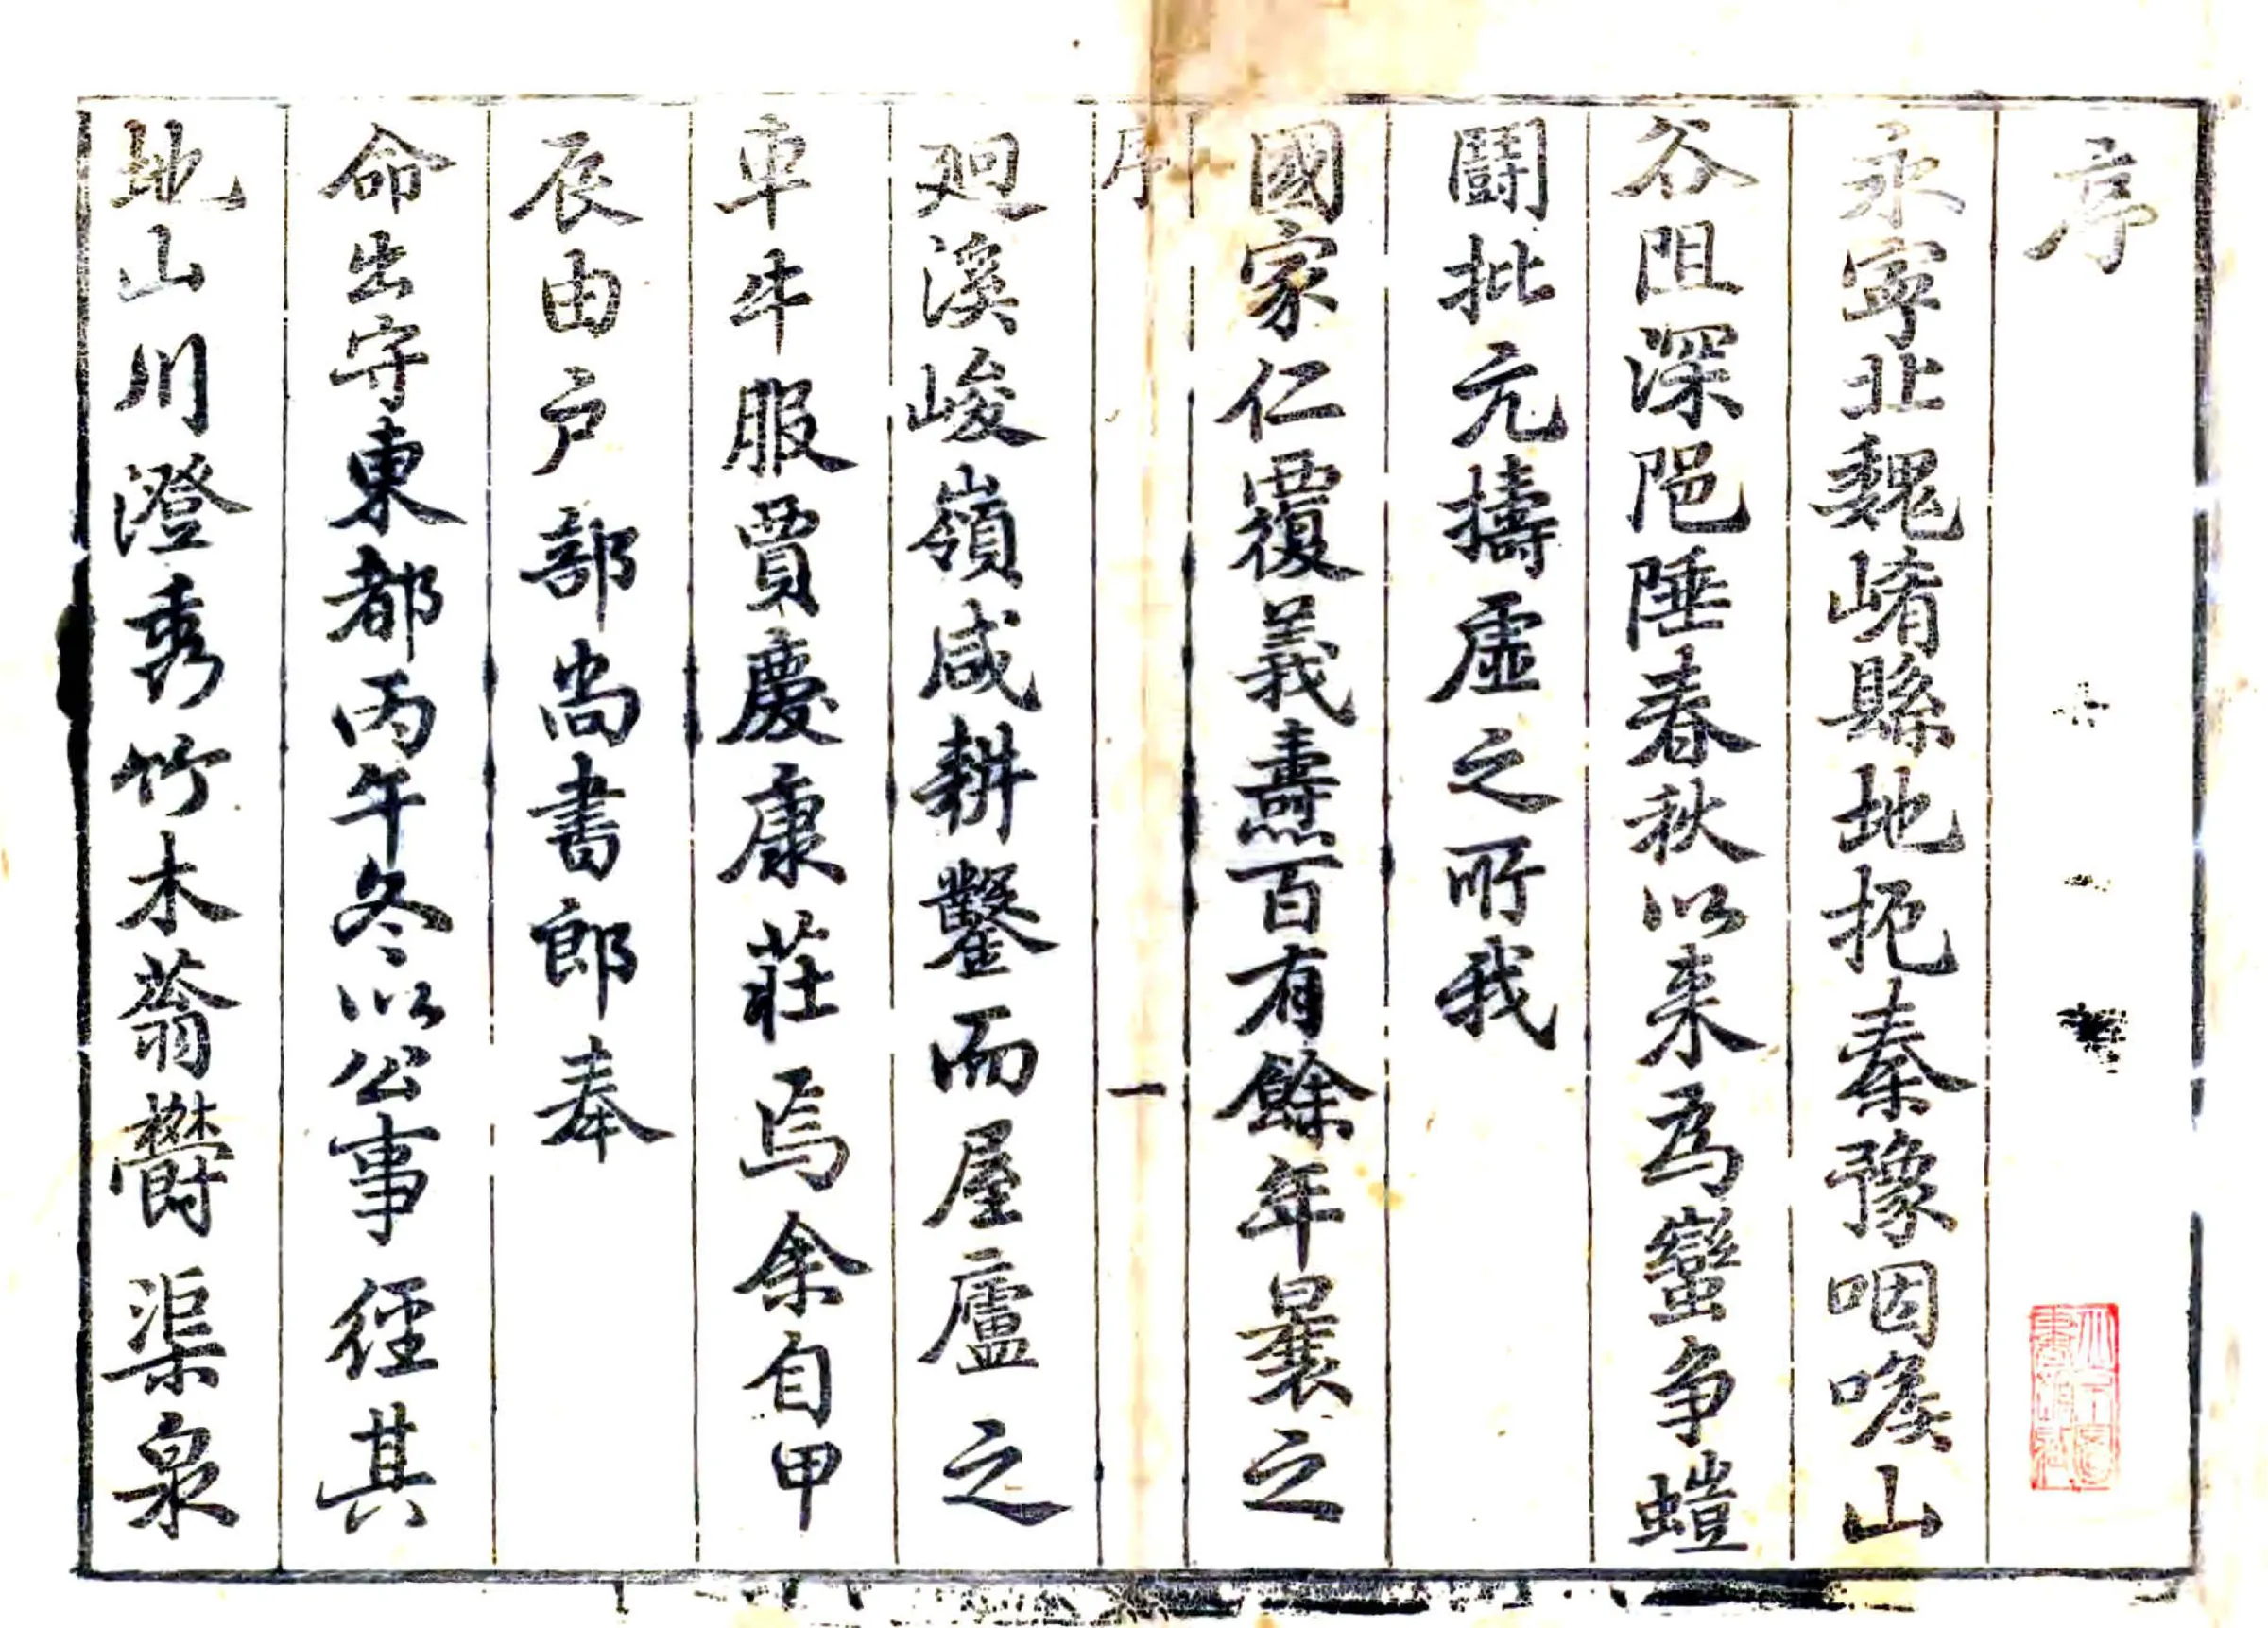 序
永寧北魏崤縣地扼秦豫咽喉山
谷阻深阸陲春秋以来為蠻争螘
鬪批亢擣虛之所我
國家仁覆義燾百有餘年曩之
序 一
廻溪峻嶺咸耕鑿而屋廬之
車牛服賈慶康莊焉余自甲
辰由户部尚書郎奉
命出守東都丙午冬以公事径其
地山川澄秀竹木蓊欎渠泉